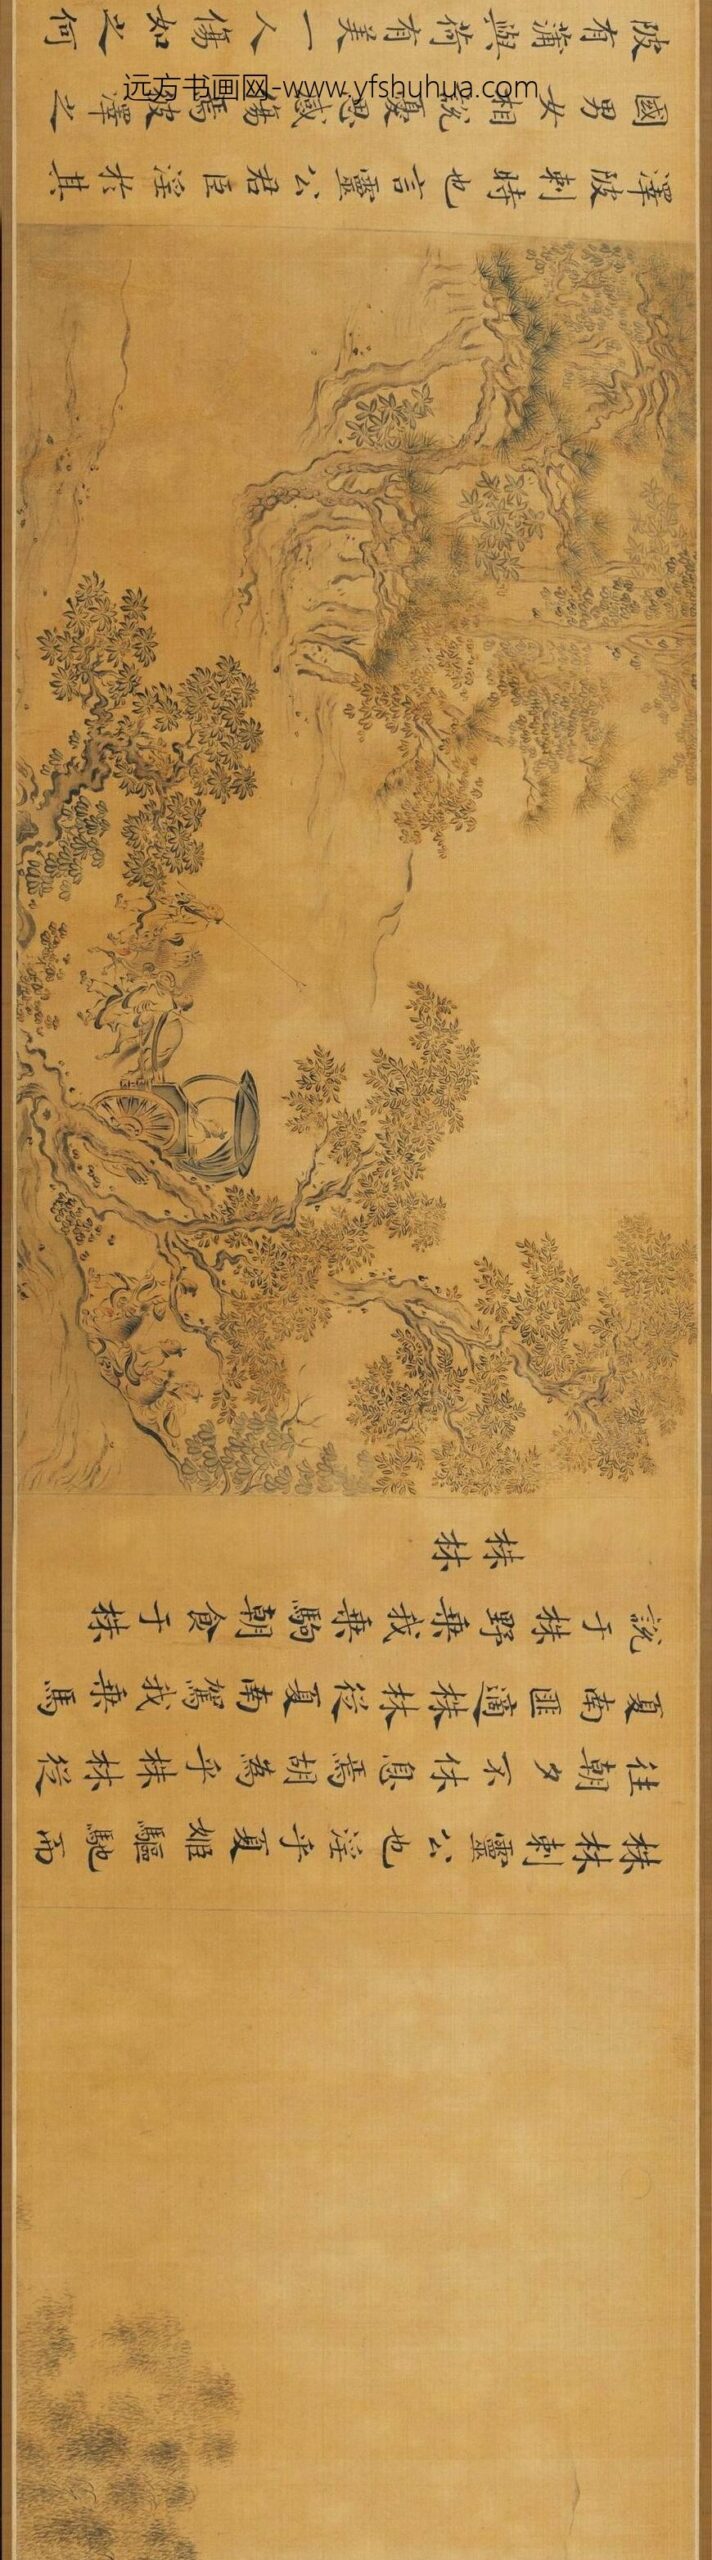 远方书画网-www.yfshuhua.com
株林刺靈公也淫乎夏姬驅馳而
往朝夕不休息焉胡為乎株林從
夏南匪適株林從夏南駕我乗馬
說于株野乗我乗駒朝食于株
株林
澤陂刺時也言靈公君臣淫於其
國男女相說憂思感傷焉彼澤之
陂有蒲與荷有美一人傷如之何